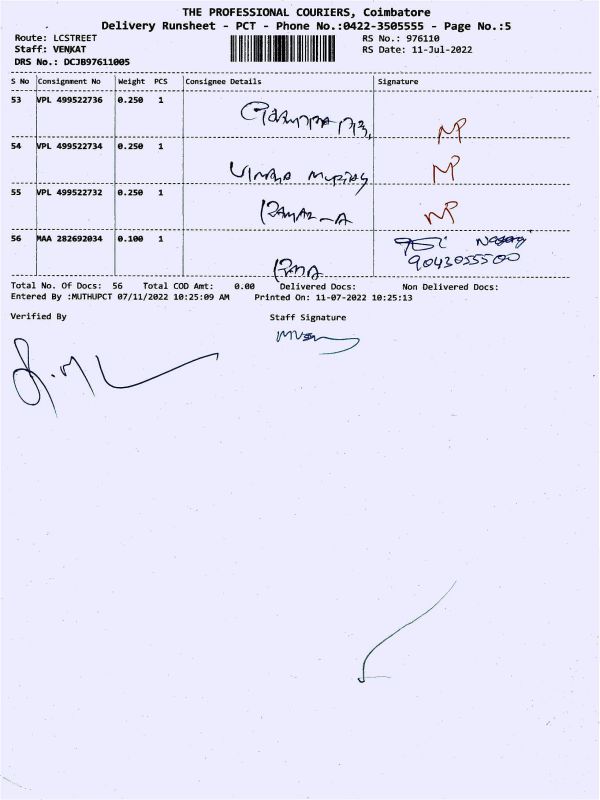 THE PROFESSIONAL COURIERS, Coimbatore
Delivery Runsheet - PCT - Phone No.:0422-3505555 - Page No.:5
Route: LCSTREET
RS No.: 976110
Staff: VENKAT
RS Date: 11-Jul-2022
DRS No.: DCJB97611005
S No Consignment No Weight PCS Consignee Details Signature
53 VPL 499522736 0.250 1
NP
54 VPL 499522734 0.250 1
NP
55 VPL 499522732 0.250 1
NP
56 MAA 282692034 0.100 1
9043055500
Total No. Of Docs: 56 Total COD Amt: 0.00 Delivered Docs: Non Delivered Docs:
Entered By :MUTHUPCT 07/11/2022 10:25:09 AM Printed On: 11-07-2022 10:25:13
Verified By Staff Signature